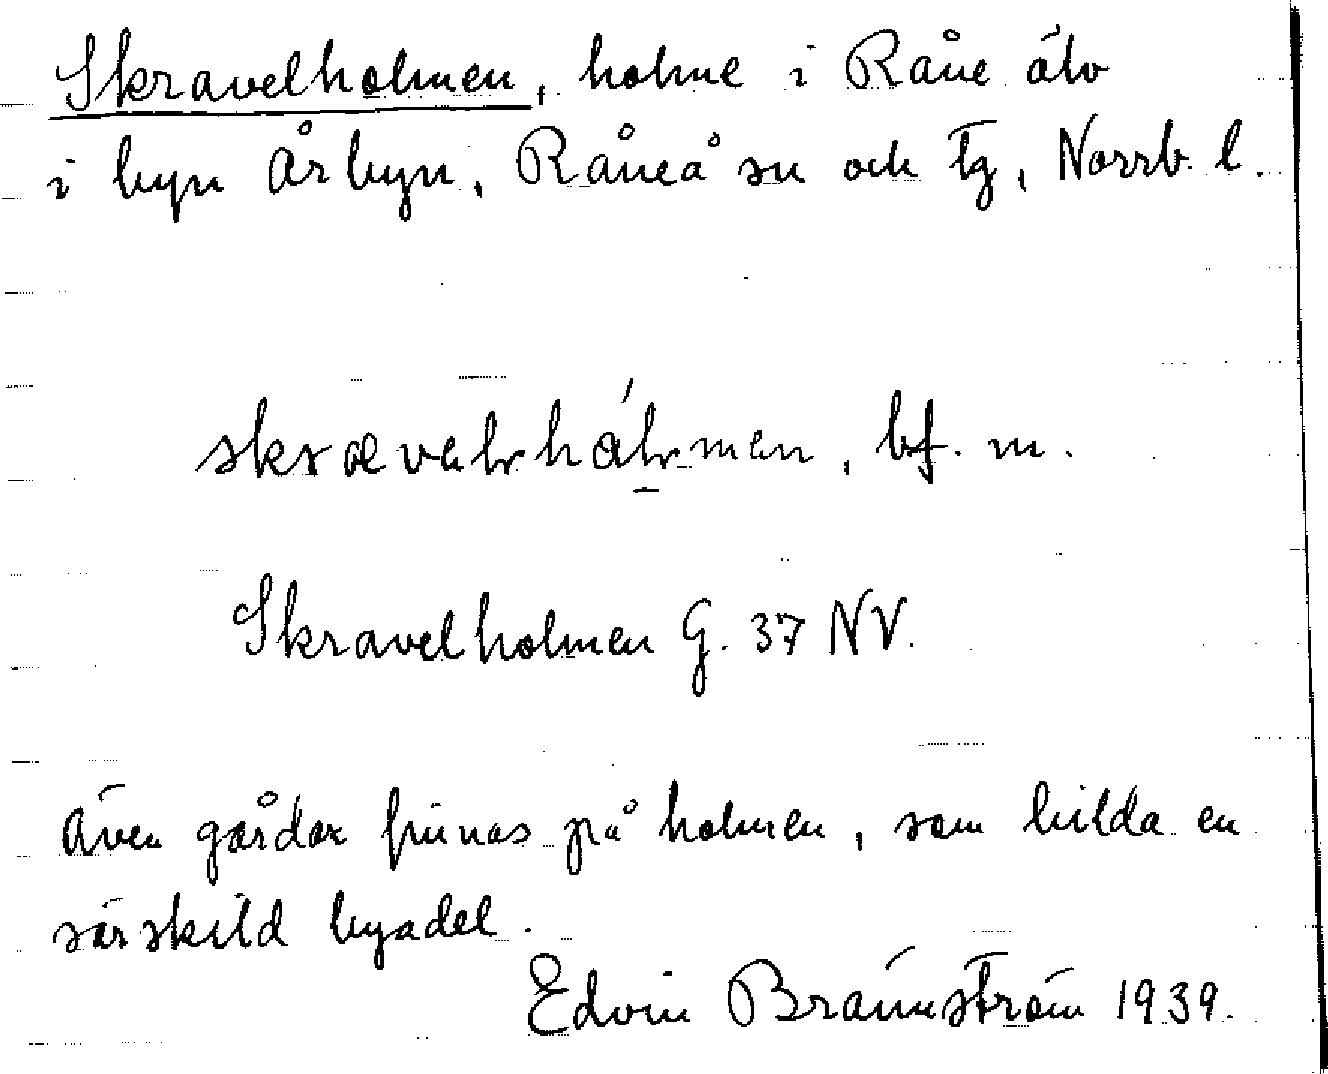 Skravelholmen, holme i Råne älv
i byn Årbyn, Råneå sn och tg, Norrb. l.
skrævaḷrháḷrmen, bf. m.
Skravelholmen G. 37 NV.
Även gårdar finnas på holmen, som bilda en
särskild byadel.
Edvin Brännström 1939.